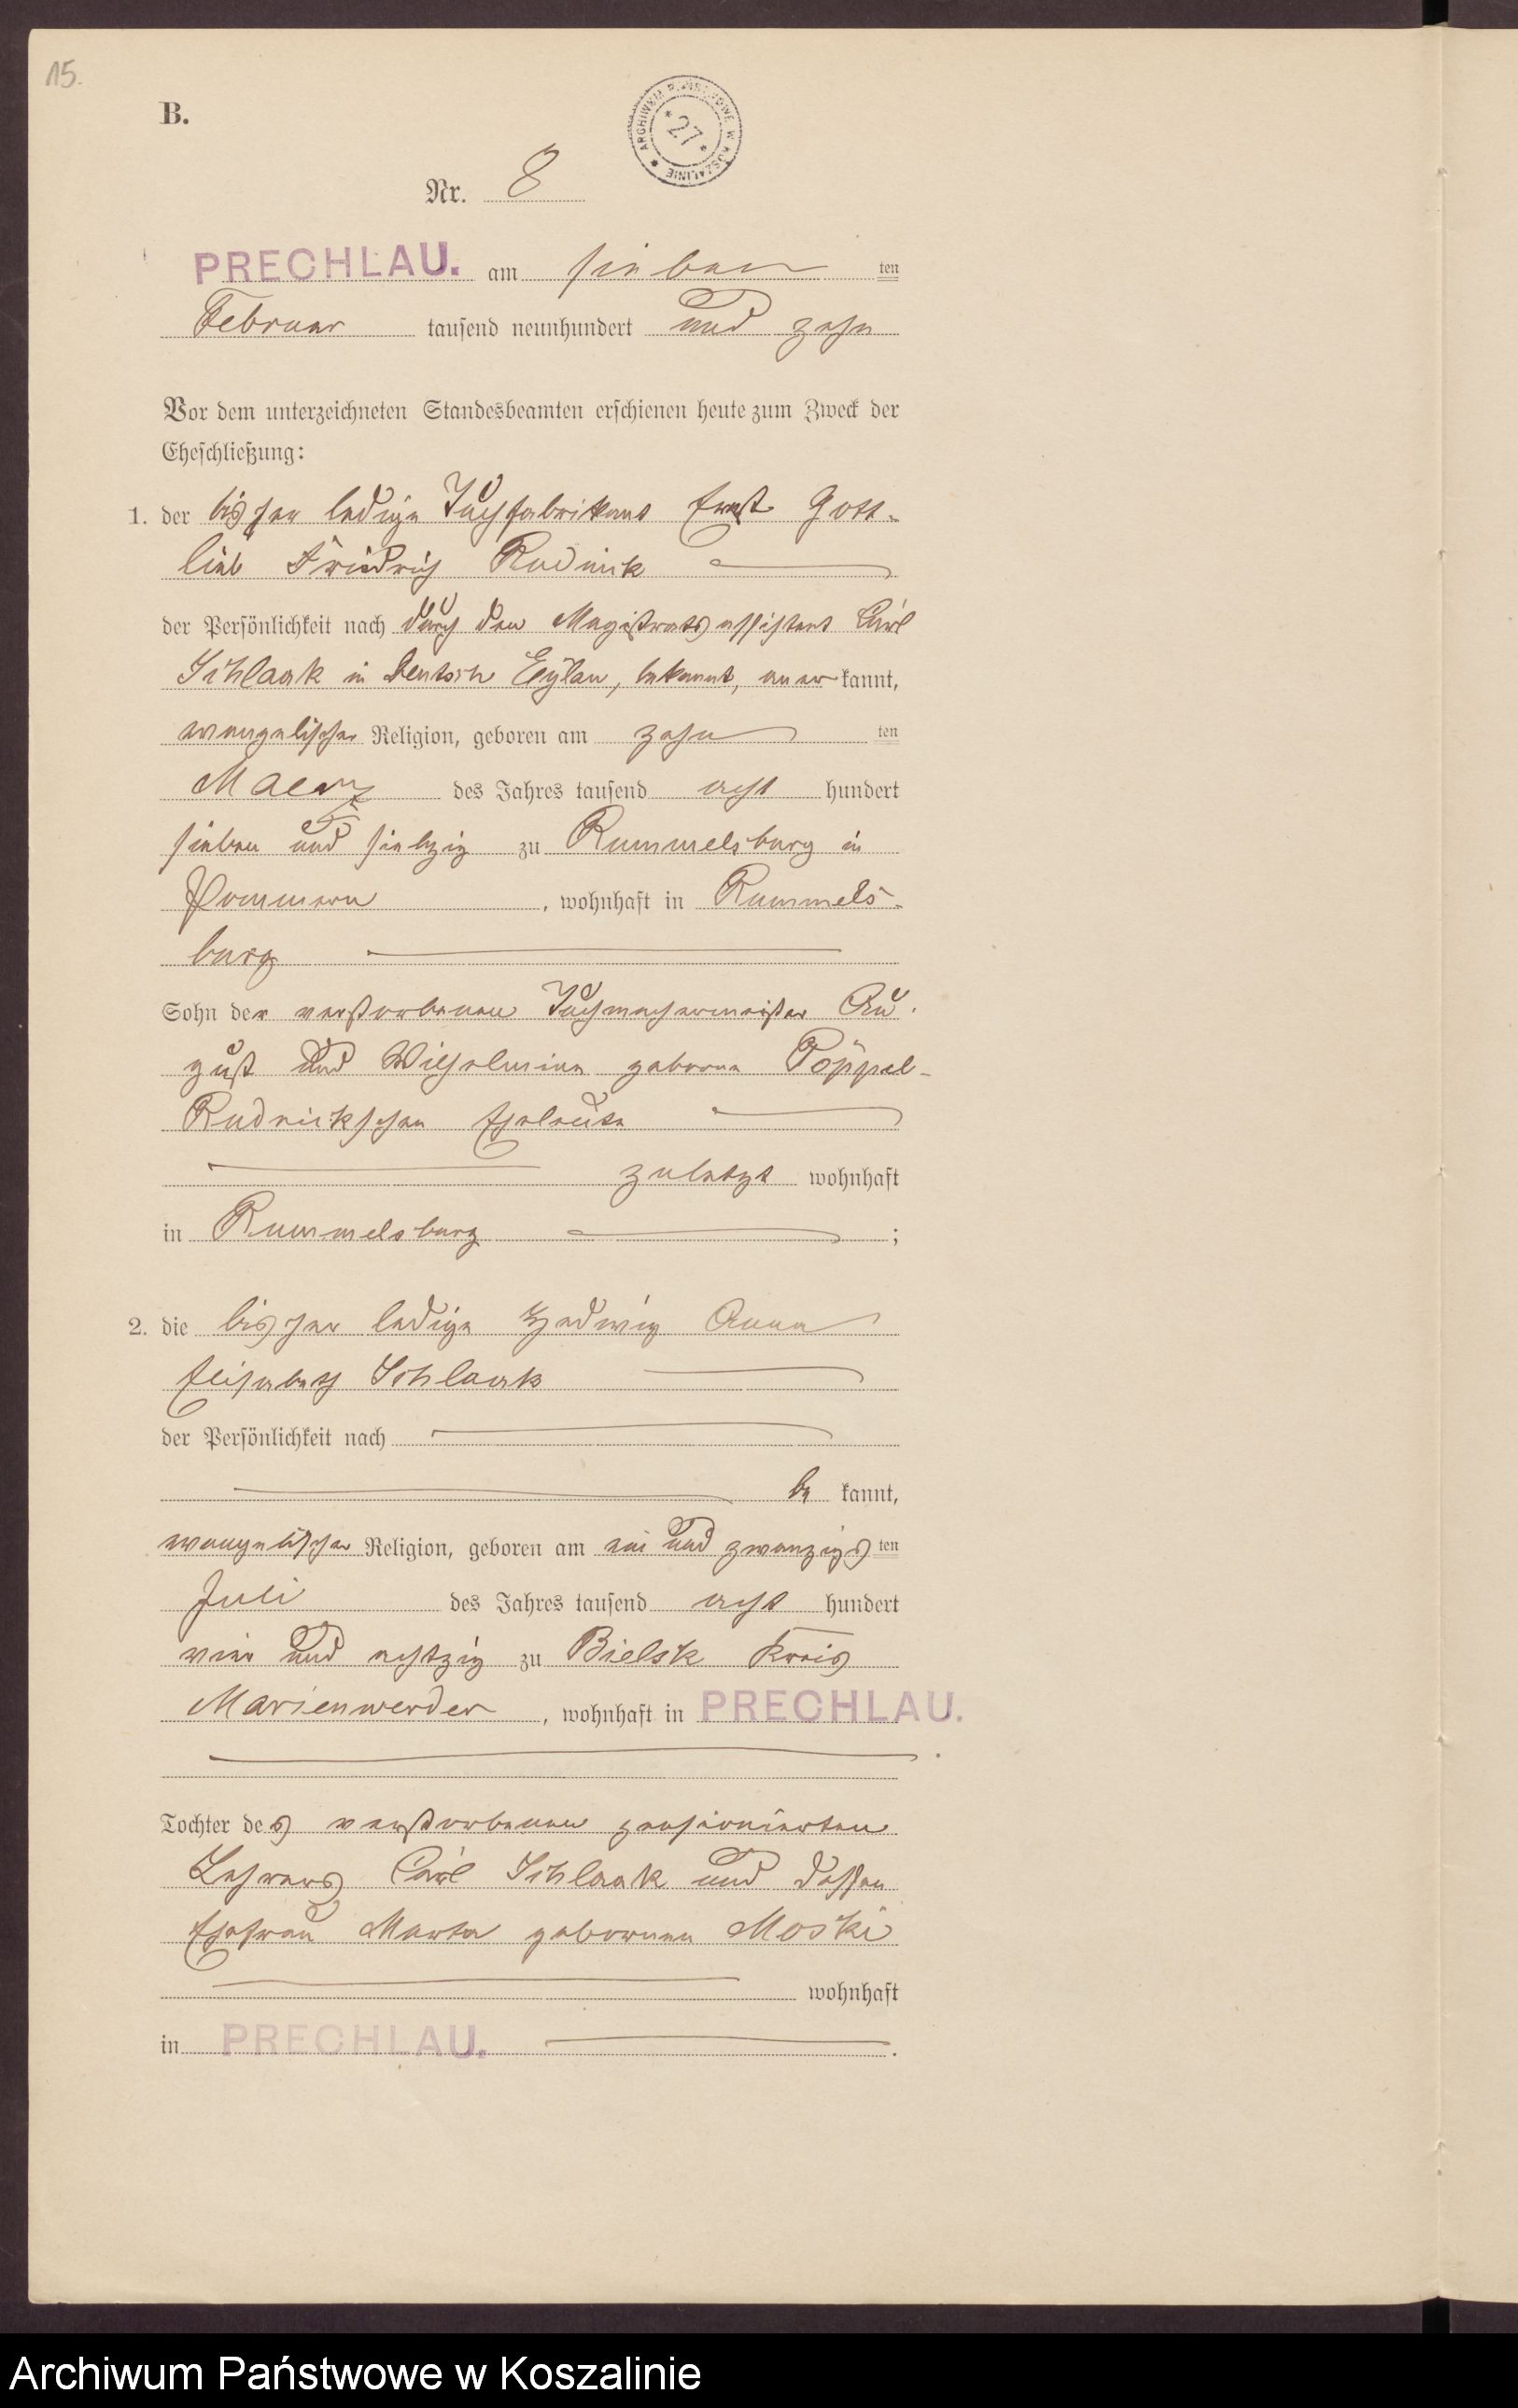 15.
B.
ARCHIWUM PAŃSTWOWE W KOSZALINIE * 27 *
Nr. 8
PRECHLAU. am sieben ten
Februar tausend neunhundert und zehn
Vor dem unterzeichneten Standesbeamten erschienen heute zum Zweck der
Eheschließung:
1. der bisher ledige Tuchfabrikant Ernst Gott-
lieb Friedrich Rudnick
der Persönlichkeit nach durch den Magistratsassistent Carl
Schlaak in Deutsch Eylau, bekannt, aner kannt,
evangelischer Religion, geboren am zehn ten
Maerz des Jahres tausend acht hundert
sieben und siebzig zu Rummelsburg in
Pommern, wohnhaft in Rummels-
burg
Sohn der verstorbenen Tuchmachermeister Au-
gust und Wilhelmine geborne Pöppel-
Rudnickschen Eheleute
zuletzt wohnhaft
in Rummelsburg ;
2. die bisher ledige Hedwig Anna
Elisabeth Schlaak
der Persönlichkeit nach
be kannt,
evangelischer Religion, geboren am ein und zwanzigs ten
Juli des Jahres tausend acht hundert
vier und achtzig zu Bielsk Kreis
Marienwerder, wohnhaft in PRECHLAU.
Tochter des verstorbenen pensionierten
Lehrers Carl Schlaak und dessen
Ehefrau Marta geborenen Moski
wohnhaft
in PRECHLAU. .
Archiwum Państwowe w Koszalinie